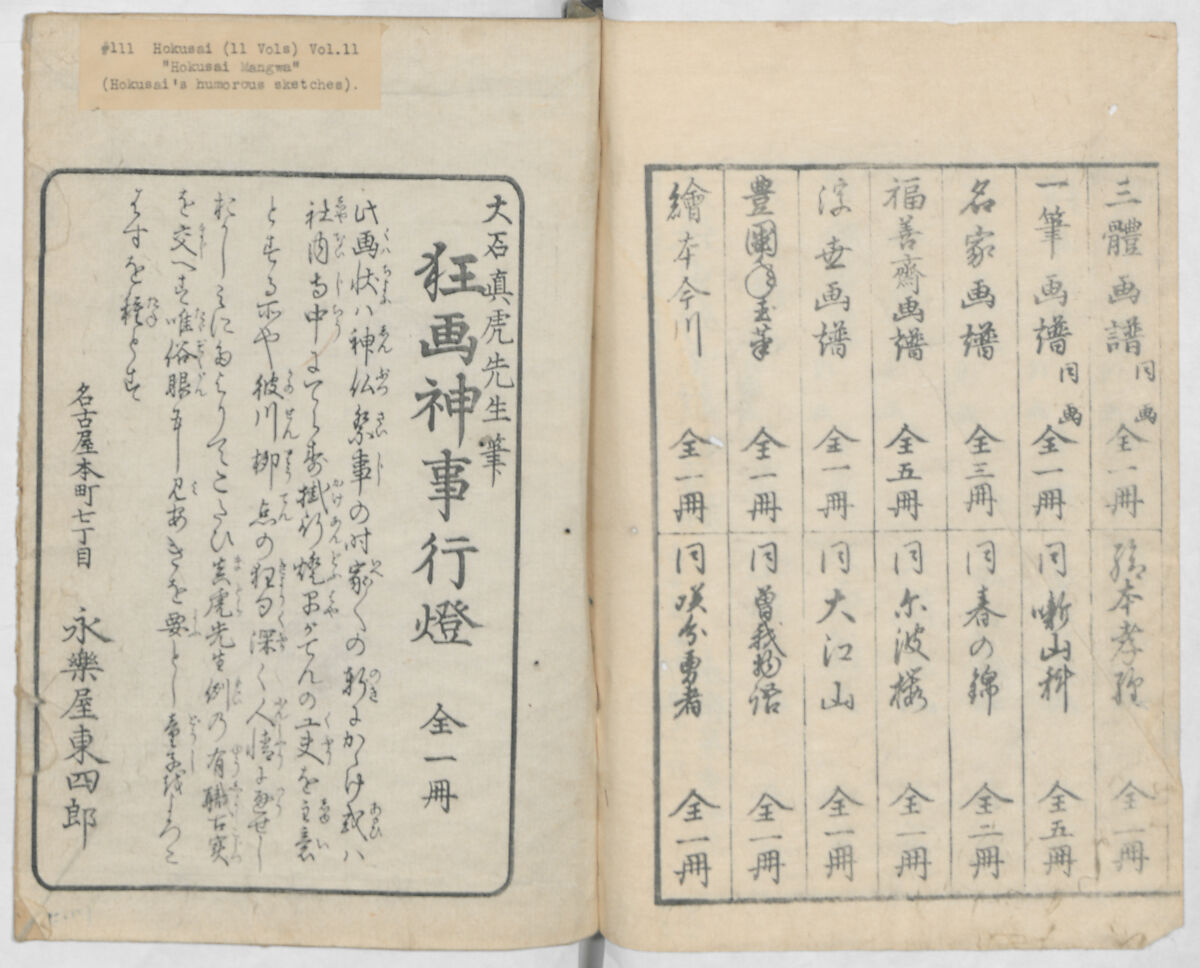 #111 Hokusai (11 Vols) Vol.11
"Hokusai Mangwa"
(Hokusai's humorous sketches).
三體画譜 同画 全一冊
一筆画譜 同画 全一冊
名家画譜 全三冊
福善齋画譜 全五冊
浮世画譜 全一冊
豊國年玉筆 全一冊
繪本今川 全一冊
繪本孝経 全一冊
同 噺山科 全五冊
同 春の錦 全二冊
同 尓波桜 全一冊
同 大江山 全一冊
同 曽我物語 全一冊
同 咲分勇者 全一冊
大石真虎先生筆
狂画神事行燈 全一冊
此画状ハ神仏祭事の時家〱の軒にかゝけ或ハ
社内寺中にてら春掛行燈里かてんの工夫を主意
と春る所や彼川柳点の狂句深く人情に
真虎先生例の有職古実
を交へ春唯俗眼に見あきを要とし童子
はすを種と春
名古屋本町七丁目 永樂屋東四郎